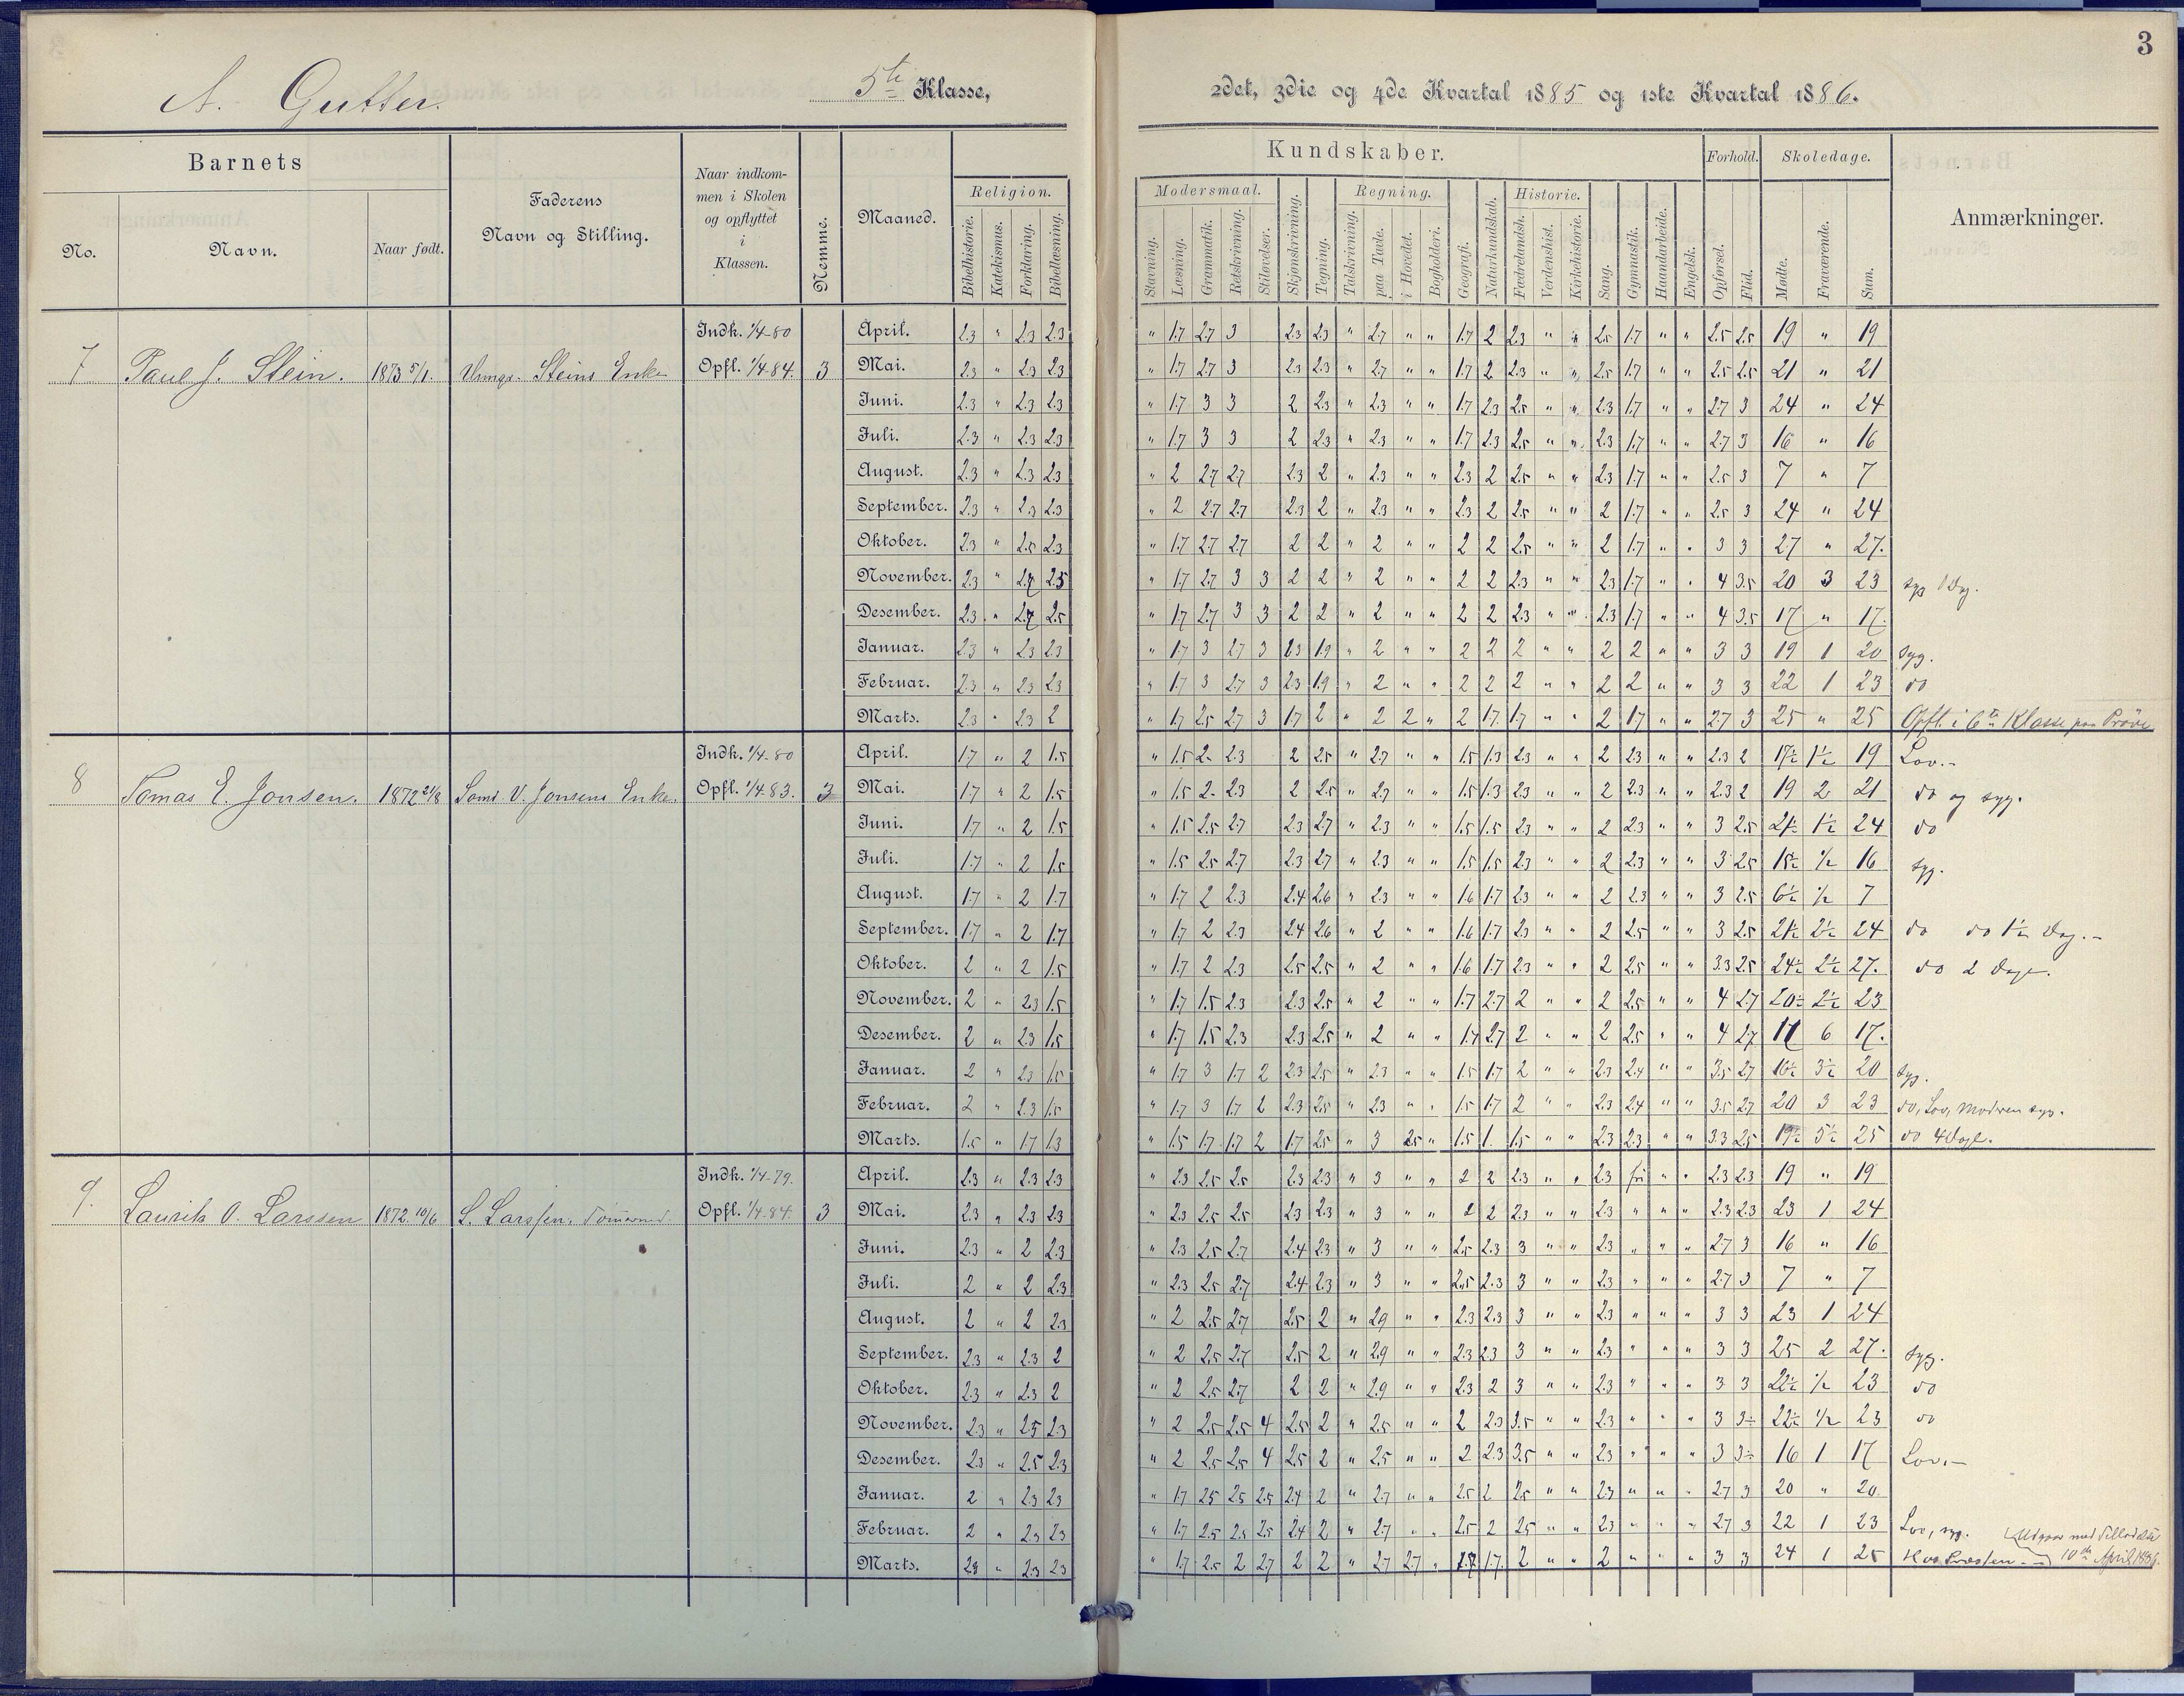 3
A. Gutter. 5te Klasse, 2det, 3die og 4de Kvartal 1885 og 1ste Kvartal 1886.
Barnets
No.
Navn.
Naar født.
Faderens
Navn og Stilling.
Naar indkom-
men i Skolen
og opflyttet
i
Klassen.
Nemme.
Maaned.
Kundskaber.
Religion.
Bibelhistorie.
Katekismus.
Forklaring.
Bibellæsning.
Modersmaal.
Stavning.
Læsning.
Grammatik.
Retskrivning.
Stiløvelser.
Skjønskrivning.
Tegning.
Regning.
Talskrivning.
paa Tavle.
i Hovedet.
Bogholderi.
Geografi.
Naturkundskab.
Historie.
Fædrelandsk.
Verdenshist.
Kirkehistorie.
Sang.
Gymnastik.
Haandarbeide.
Engelsk.
Forhold.
Opførsel.
Flid.
Skoledage.
Mødte.
Fraværende.
Sum.
Anmærkninger.
7 Paul J. Stein. 1873 5/1. Steins Enke Indk. 1/4-80 Opfl. 1/4-84. 3
April. 2.3 " 2.3 2.3 " 1.7 2.7 3 2.3 2.3 " 2.7 " " 1.7 2 2.3 " " 2.5 1.7 " " 2.5 2.5 19 " 19
Mai. 2.3 " 2.3 2.3 " 1.7 2.7 3 2.3 2.3 " 2.7 " " 1.7 2 2.3 " " 2.5 1.7 " " 2.5 2.5 21 " 21
Juni. 2.3 " 2.3 2.3 " 1.7 3 3 2 2.3 " 2.3 " " 1.7 2.3 2.5 " " 2.3 1.7 " " 2.7 3 24 " 24
Juli. 2.3 " 2.3 2.3 " 1.7 3 3 2 2.3 " 2.3 " " 1.7 2.3 2.5 " " 2.3 1.7 " " 2.7 3 16 " 16
August. 2.3 " 2.3 2.3 " 2 2.7 2.7 2.3 2 " 2.3 " " 2.3 2 2.5 " " 2.3 1.7 " " 2.5 3 7 " 7
September. 2.3 " 2.3 2.3 " 2 2.7 2.7 2.3 2 " 2.3 " " 2.3 2 2.5 " " 2 1.7 " " 2.5 3 24 " 24
Oktober. 2.3 " 2.5 2.3 " 1.7 2.7 2.7 2 2 " 2 " " 2 2 2.5 " " 2 1.7 " " 3 3 27 " 27.
November. 2.3 " 2.7 2.5 " 1.7 2.7 3 3 2 2 " 2 " " 2 2 2.3 " " 2.3 1.7 " " 4 3.5 20 3 23 syg 1 Dag.
Desember. 2.3 " 2.7 2.5 " 1.7 2.7 3 3 2 2 " 2 " " 2 2 2.3 " " 2.3 1.7 " " 4 3.5 17 " 17.
Januar. 2.3 " 2.3 2.3 " 1.7 3 2.7 3 2.3 1.9 " 2 " " 2 2 2 " " 2 2 " " 3 3 19 1 20 syg.
Februar. 2.3 " 2.3 2.3 " 1.7 3 2.7 3 2.3 1.9 " 2 " " 2 2 2 " " 2 2 " " 3 3 22 1 23 do
Marts. 2.3 " 2.3 2 " 1.7 2.5 2.7 3 1.7 2 " 2 2 " 2 1.7 1.7 " " 2 1.7 " " 2.7 3 25 " 25 Opfl. i 6te Klasse paa Prøve
8 Tomas E. Jonsen. 1872 21/8 Sømd. V. Jonsens Enke. Indk. 1/4-80 Opfl. 1/4-83. 3
April. 1.7 " 2 1.5 " 1.5 2 2.3 2 2.5 " 2.7 " " 1.5 1.3 2.3 " " 2 2.3 " " 2.3 2 17½ 1½ 19 Lov.-
Mai. 1.7 " 2 1.5 " 1.5 2 2.3 2 2.5 " 2.7 " " 1.5 1.3 2.3 " " 2 2.3 " " 2.3 2 19 2 21 do og syg.
Juni. 1.7 " 2 1.5 " 1.5 2.5 2.7 2.3 2.7 " 2.3 " " 1.5 1.5 2.3 " " 2 2.3 " " 3 2.5 21½ 1½ 24 do
Juli. 1.7 " 2 1.5 " 1.5 2.5 2.7 2.3 2.7 " 2.3 " " 1.5 1.5 2.3 " " 2 2.3 " " 3 2.5 15½ ½ 16 syg.
August. 1.7 " 2 1.7 " 1.7 2 2.3 2.4 2.6 " 2.3 " " 1.6 1.7 2.3 " " 2 2.3 " " 3 2.5 6½ ½ 7
September. 1.7 " 2 1.7 " 1.7 2 2.3 2.4 2.6 " 2 " " 1.6 1.7 2.3 " " 2 2.5 " " 3 2.5 21½ 2½ 24 do do 1½ Dag.-
Oktober. 2 " 2 1.5 " 1.7 2 2.3 2.5 2.5 " 2 " " 1.6 1.7 2.3 " " 2 2.5 " " 3.3 2.5 24½ 2½ 27. do 2 Dage.
November. 2 " 2.3 1.5 " 1.7 1.5 2.3 2.3 2.5 " 2 " " 1.7 2.7 2 " " 2 2.5 " " 4 2.7 20½ 2½ 23
Desember. 2 " 2.3 1.5 " 1.7 1.5 2.3 2.3 2.5 " 2 " " 1.7 2.7 2 " " 2 2.5 " " 4 2.7 11 6 17.
Januar. 2 " 2.3 1.5 " 1.7 3 1.7 2 2.3 2.5 " 2.3 " " 1.5 1.7 2 " " 2.3 2.4 " " 3.5 2.7 16½ 3½ 20 syg.
Februar. 2 " 2.3 1.5 " 1.7 3 1.7 2 2.3 2.5 " 2.3 " " 1.5 1.7 2 " " 2.3 2.4 " " 3.5 2.7 20 3 23 do, Lov, Modren syg.
Marts. 1.5 " 1.7 1.3 " 1.5 1.7 1.7 2 1.7 2.5 " 3 2.5 " 1.5 1. 1.5 " " 2.3 2.3 " " 3.3 2.5 19½ 5½ 25 do 4 Dage.
9. Laurits O. Larssen 1872 10/6 L. Larssen, Tømmermd. Indk. 1/4-79. Opfl. 1/4-84. 3
April. 2.3 " 2.3 2.3 " 2.3 2.5 2.5 2.3 2.3 " 3 " " 2 2 2.3 " " 2.3 fri " " 2.3 2.3 19 " 19
Mai. 2.3 " 2.3 2.3 " 2.3 2.5 2.5 2.3 2.3 " 3 " " 2 2 2.3 " " 2.3 " " " 2.3 2.3 23 1 24
Juni. 2.3 " 2 2.3 " 2.3 2.5 2.7 2.4 2.3 " 3 " " 2.5 2.3 3 " " 2.3 " " " 2.7 3 16 " 16
Juli. 2 " 2 2.3 " 2.3 2.5 2.7 2.4 2.3 " 3 " " 2.5 2.3 3 " " 2.3 " " " 2.7 3 7 " 7
August. 2 " 2 2.3 " 2 2.5 2.7 2.5 2 " 2.9 " " 2.3 2.3 3 " " 2.3 " " " 3 3 23 1 24
September. 2.3 " 2.3 2 " 2 2.5 2.7 2.5 2 " 2.9 " " 2.3 2.3 3 " " 2.3 " " " 3 3 25 2 27. syg.
Oktober. 2.3 " 2.3 2 " 2 2.5 2.7 2 2 " 2.9 " " 2.3 2 3 " " 2.3 " " " 3 3 22½ ½ 23 do
November. 2.3 " 2.5 2.3 " 2 2.5 2.5 4 2.5 2 " 2.5 " " 2 2.3 3.5 " " 2.3 " " " 3 3÷ 22½ ½ 23 do
Desember. 2.3 " 2.5 2.3 " 2 2.5 2.5 4 2.5 2 " 2.5 " " 2 2.3 3.5 " " 2.3 " " " 3 3÷ 16 1 17 Lov.-
Januar. 2 " 2.3 2.3 " 1.7 2.5 2.5 2.5 2.4 2 " 2.7 " " 2.5 2 2.5 " " 2.3 " " " 2.7 3 20 " 20
Februar. 2 " 2.3 2.3 " 1.7 2.5 2.5 2.5 2.4 2 " 2.7 " " 2.5 2 2.5 " " 2.3 " " " 2.7 3 22 1 23 Lov, syg. Udgaar med Tilladelse
Marts. 2.3 " 2.3 2.3 " 1.7 2.5 2 2.7 2 2 " 2.7 2.7 " 1.7 1.7 2 " " 2 " " " 3 3 24 1 25 Hos Presten. 10de April 1886.